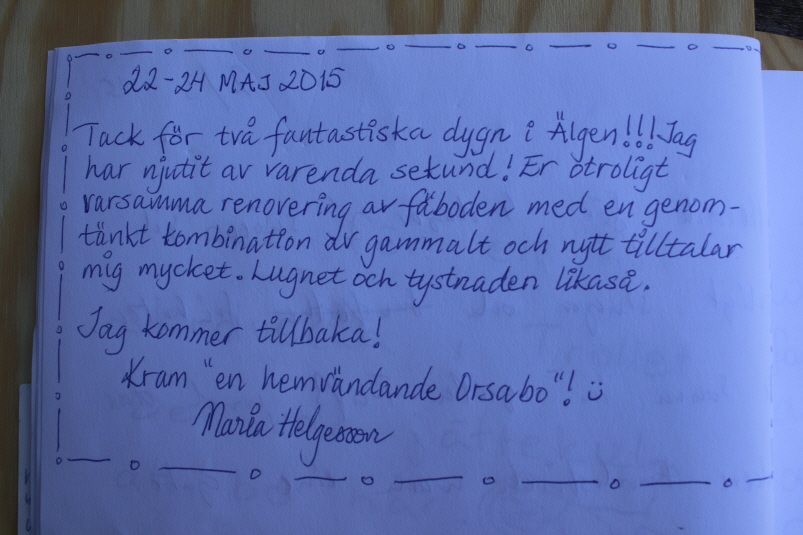 22-24 MAJ 2015
Tack för två fantastiska dygn i Älgen!!! Jag
har njutit av varenda sekund! Er otroligt
varsamma renovering av fäboden med en genom-
tänkt kombination av gammalt och nytt tilltalar
mig mycket. Lugnet och tystnaden likaså.
Jag kommer tillbaka!
Kram "en hemvändande Orsabo"! ☺
Maria Helgesson